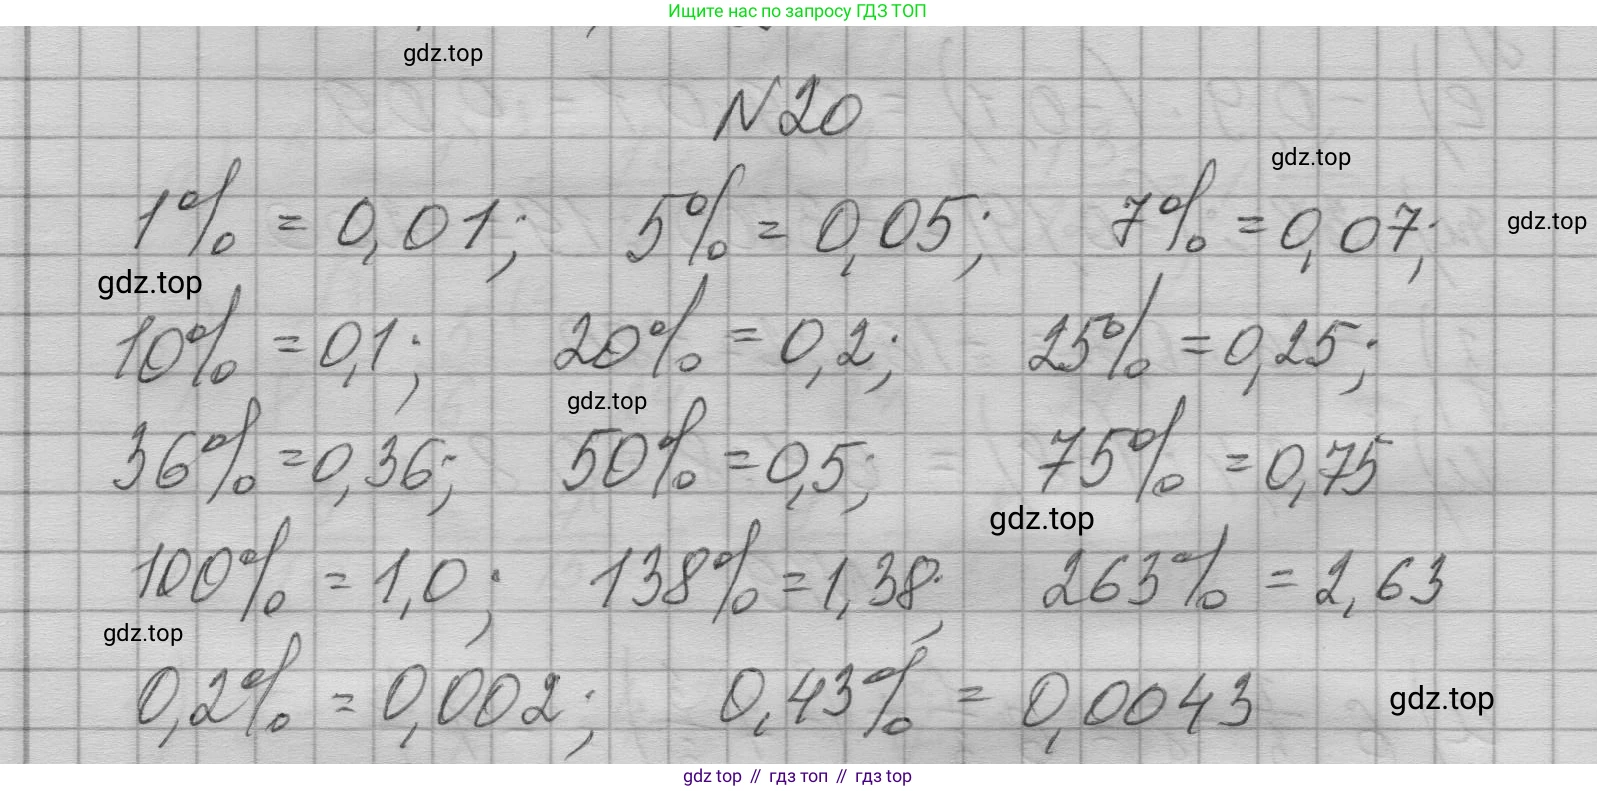 Ищите нас по запросу ГДЗ ТОП
gdz.top
N20
gdz.top
1% = 0,01; 5% = 0,05; 7% = 0,07;
gdz.top
gdz.top
10% = 0,1; 20% = 0,2; 25% = 0,25;
gdz.top
36% = 0,36; 50% = 0,5; 75% = 0,75
gdz.top
100% = 1,0; 138% = 1,38; 263% = 2,63
gdz.top
0,2% = 0,002; 0,43% = 0,0043
gdz.top
gdz top // гдз топ // gdz top